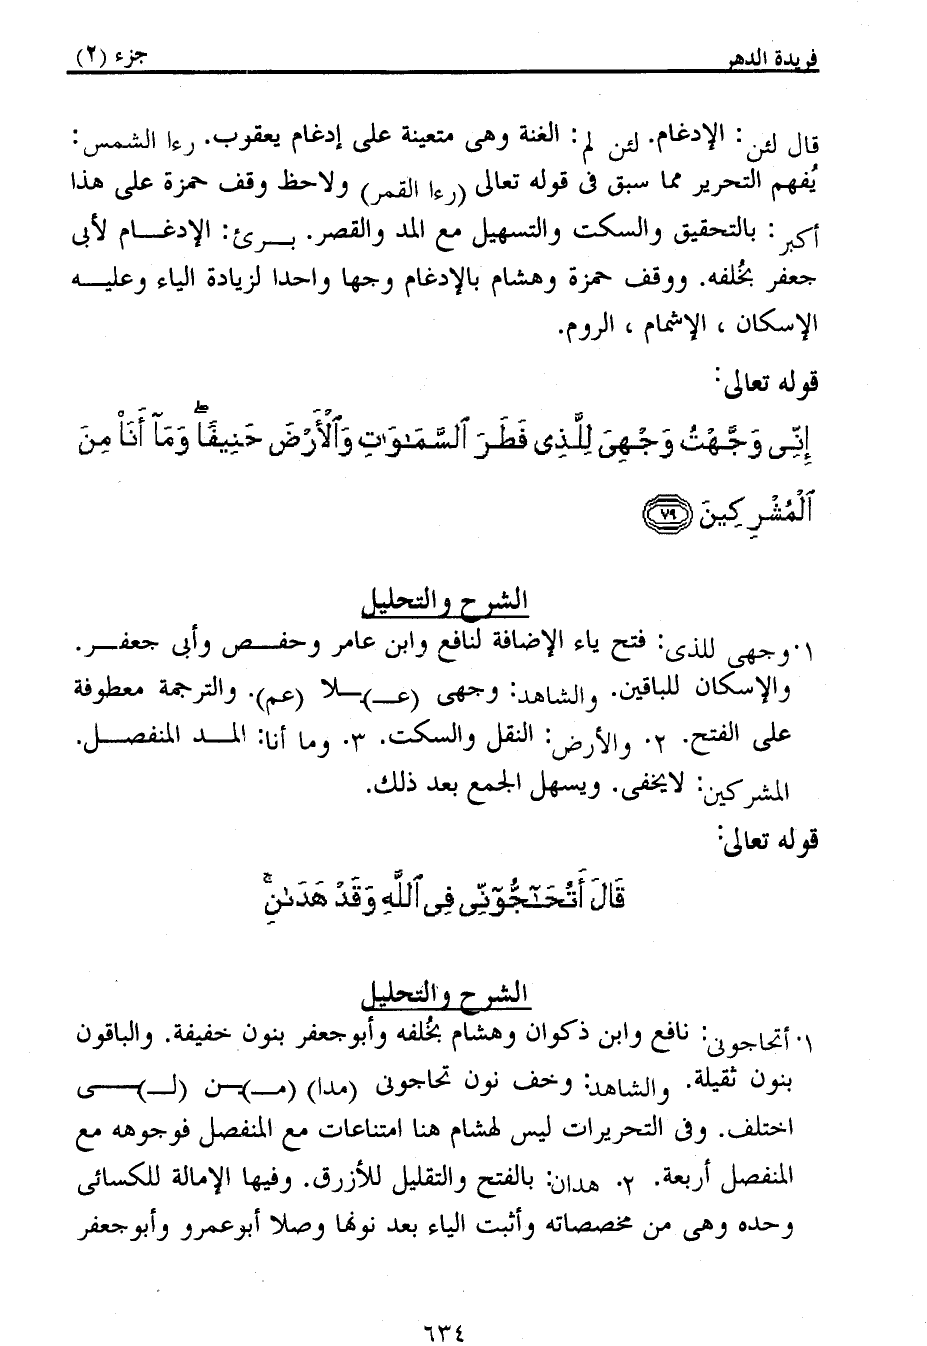 فريدة الدهر جزء (٢)
قال لئن: الإدغام. لئن لم: الغنة وهى متعينة على إدغام يعقوب. رءا الشمس:
يُفهم التحرير مما سبق فى قوله تعالى (رءا القمر) ولاحظ وقف حمزة على هذا
أكبر: بالتحقيق والسكت والتسهيل مع المد والقصر. بـــرئ: الإدغـــام لأبى
جعفر بخُلفه. ووقف حمزة وهشام بالإدغام وجها واحدا لزيادة الياء وعليـــه
الإسكان ، الإشمام ، الروم.
قوله تعالى:
إِنِّى وَجَّهْتُ وَجْهِىَ لِلَّذِى فَطَرَ ٱلسَّمَـٰوَٰتِ وَٱلْأَرْضَ حَنِيفًا ۖ وَمَآ أَنَا۠ مِنَ
ٱلْمُشْرِكِينَ ٧٩
الشرح والتحليل
١. وجهى للذى: فتح ياء الإضافة لنافع وابن عامر وحفـــص وأبى جعفـــر.
والإسكان للباقين. والشاهد: وجهى (عــ)ــلا (عم). والترجمة معطوفة
على الفتح. ٢. والأرض: النقل والسكت. ٣. وما أنا: المـــد المنفصـــل.
المشركين: لايخفى. ويسهل الجمع بعد ذلك.
قوله تعالى:
قَالَ أَتُحَـٰٓجُّوٓنِّى فِى ٱللَّهِ وَقَدْ هَدَىٰنِ ۚ
الشرح والتحليل
١. أتحاجونى: نافع وابن ذكوان وهشام بخُلفه وأبوجعفر بنون خفيفة. والباقون
بنون ثقيلة. والشاهد: وخف نون تحاجونى (مدا) (مــ)ــن (لــ)ــــى
اختلف. وفى التحريرات ليس لهشام هنا امتناعات مع المنفصل فوجوهه مع
المنفصل أربعة. ٢. هدان: بالفتح والتقليل للأزرق. وفيها الإمالة للكسائى
وحده وهى من مخصصاته وأثبت الياء بعد نونها وصلا أبوعمرو وأبوجعفر
٦٣٤